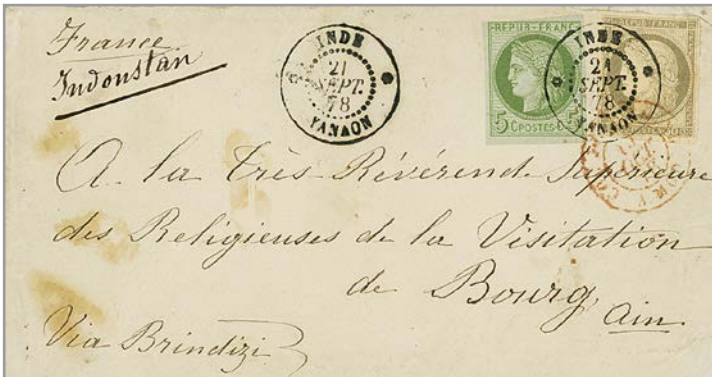 France
Indoustan
INDE
21
SEPT.
78
YANAON
REPUB. FRANC.
5 C POSTES 5
INDE
21
SEPT.
78
YANAON
REPUB. FRANC.
A la Très Révérende Supérieure
des Religieuses de la Visitation
de Bourg,
Ain.
Via Brindizi